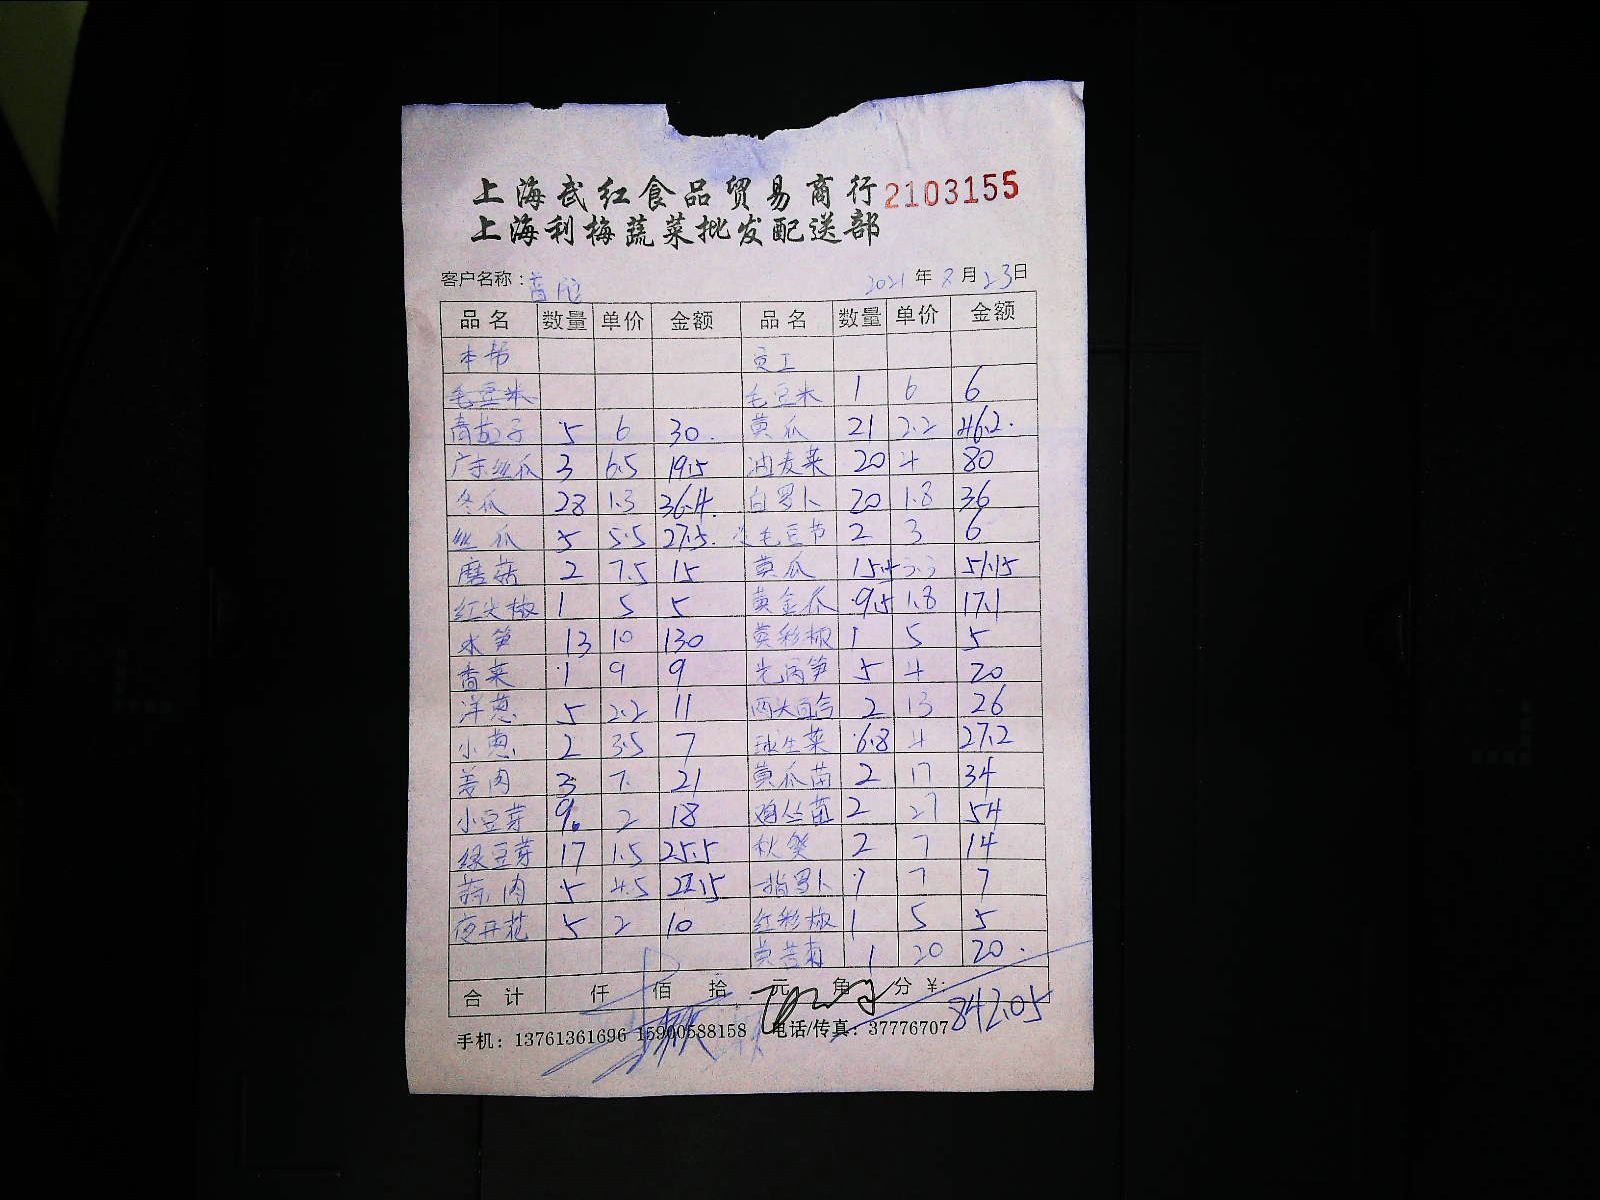 上海武红食品贸易商行 2103155
上海利梅蔬菜批发配送部
客户名称: 2021年8月23日
品名 数量 单价 金额 品名 数量 单价 金额
本帮 员工
毛豆米 毛豆米 1 6 6
青茄子 5 6 30. 黄瓜 21 2.2 46.2.
广东丝瓜 3 6.5 19.5 油麦菜 20 4 80
冬瓜 28 1.3 36.4. 白罗卜 20 1.8 36
丝瓜 5 5.5 27.5. 毛豆节 2 3 6
磨菇 2 7.5 15 黄瓜 15.5 3.3 51.15
红尖椒 1 5 5 黄金瓜 9.5 1.8 17.1
水笋 13 10 130 黄彩椒 1 5 5
香菜 1 9 9 光莴笋 5 4 20
洋葱 5 2.2 11 两头百合 2 13 26
小葱 2 3.5 7 球生菜 6.8 4 27.2
姜肉 3 7 21 黄瓜苗 2 17 34
小豆芽 9 2 18 鸡丝菌 2 27 54
绿豆芽 17 1.5 25.5 秋葵 2 7 14
蒜肉 5 4.5 22.5 一指罗卜 7 7
夜开花 5 2 10 红彩椒 1 5 5
黄苦菊 1 20 20.
合计 仟 佰 拾 元 角 分 ¥: 842.05
手机: 13761361696 15900588158 电话/传真: 37776707